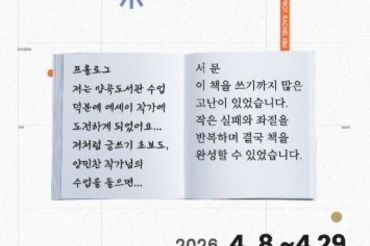 프롤로그
저는 양곡도서관 수업
덕분에 에세이 작가에
도전하게 되었어요...
저처럼 글쓰기 초보도,
양민찬 작가님의
수업을 들으면...
서 문
이 책을 쓰기까지 많은
고난이 있었습니다.
작은 실패와 좌절을
반복하며 결국 책을
완성할 수 있었습니다.
2026 4. 8 ~4.29